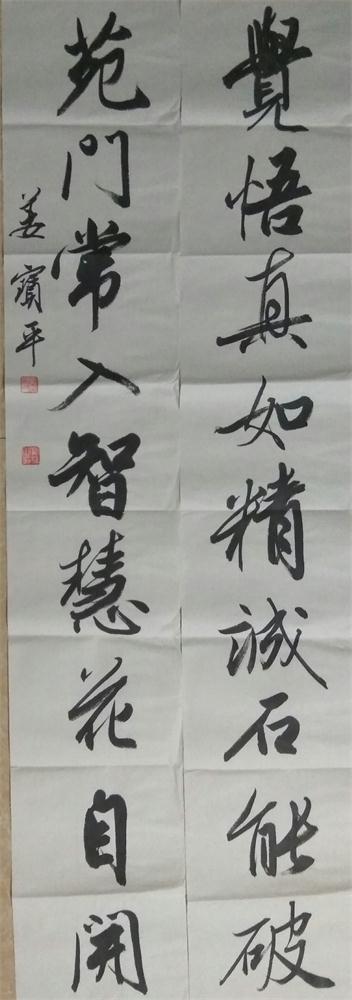 覺悟真如精誠石能破
苑門常入智慧花自開
姜寶平